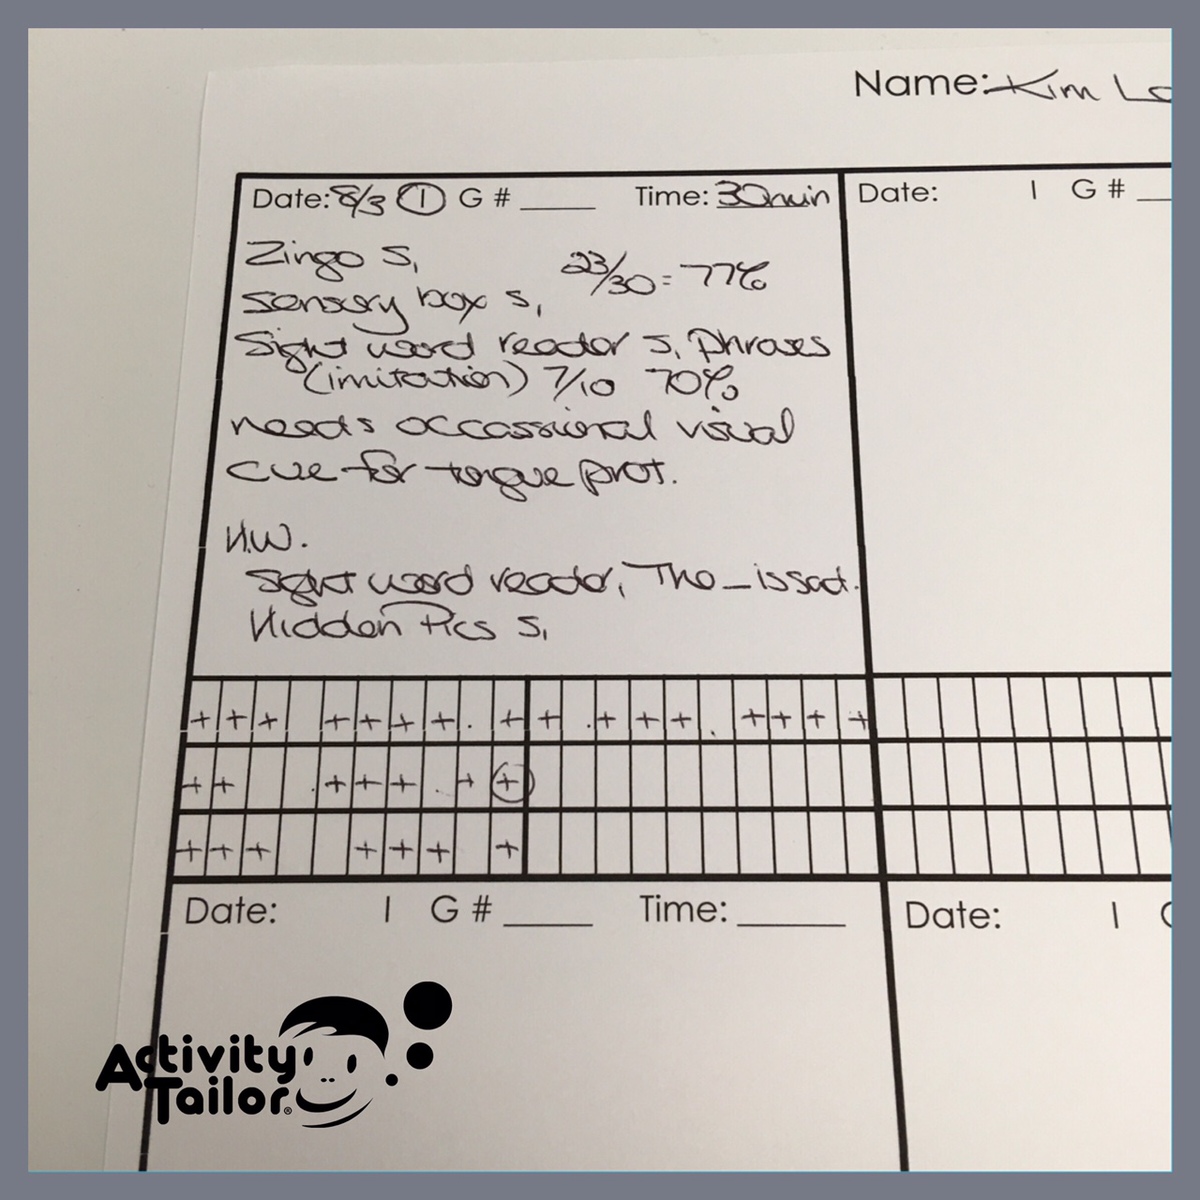 Name: Kim Lo
Date: 8/3 I G # ____ Time: 30min
Date: I G # _
Zingo S,
23/30 = 77%
sensory box s,
Sight word reader s, phrases
(imitation) 7/10 70%
needs occassional visual
cue for tongue prot.
H.W.
Sight word reader, The _ is sad.
Hidden Pics S,
+ + + + + + + . + + . + + + . + + + +
+ + . + + + . + +
+ + + + + + +
Date: I G # ____ Time: ____
Date: I
Activity
Tailor®